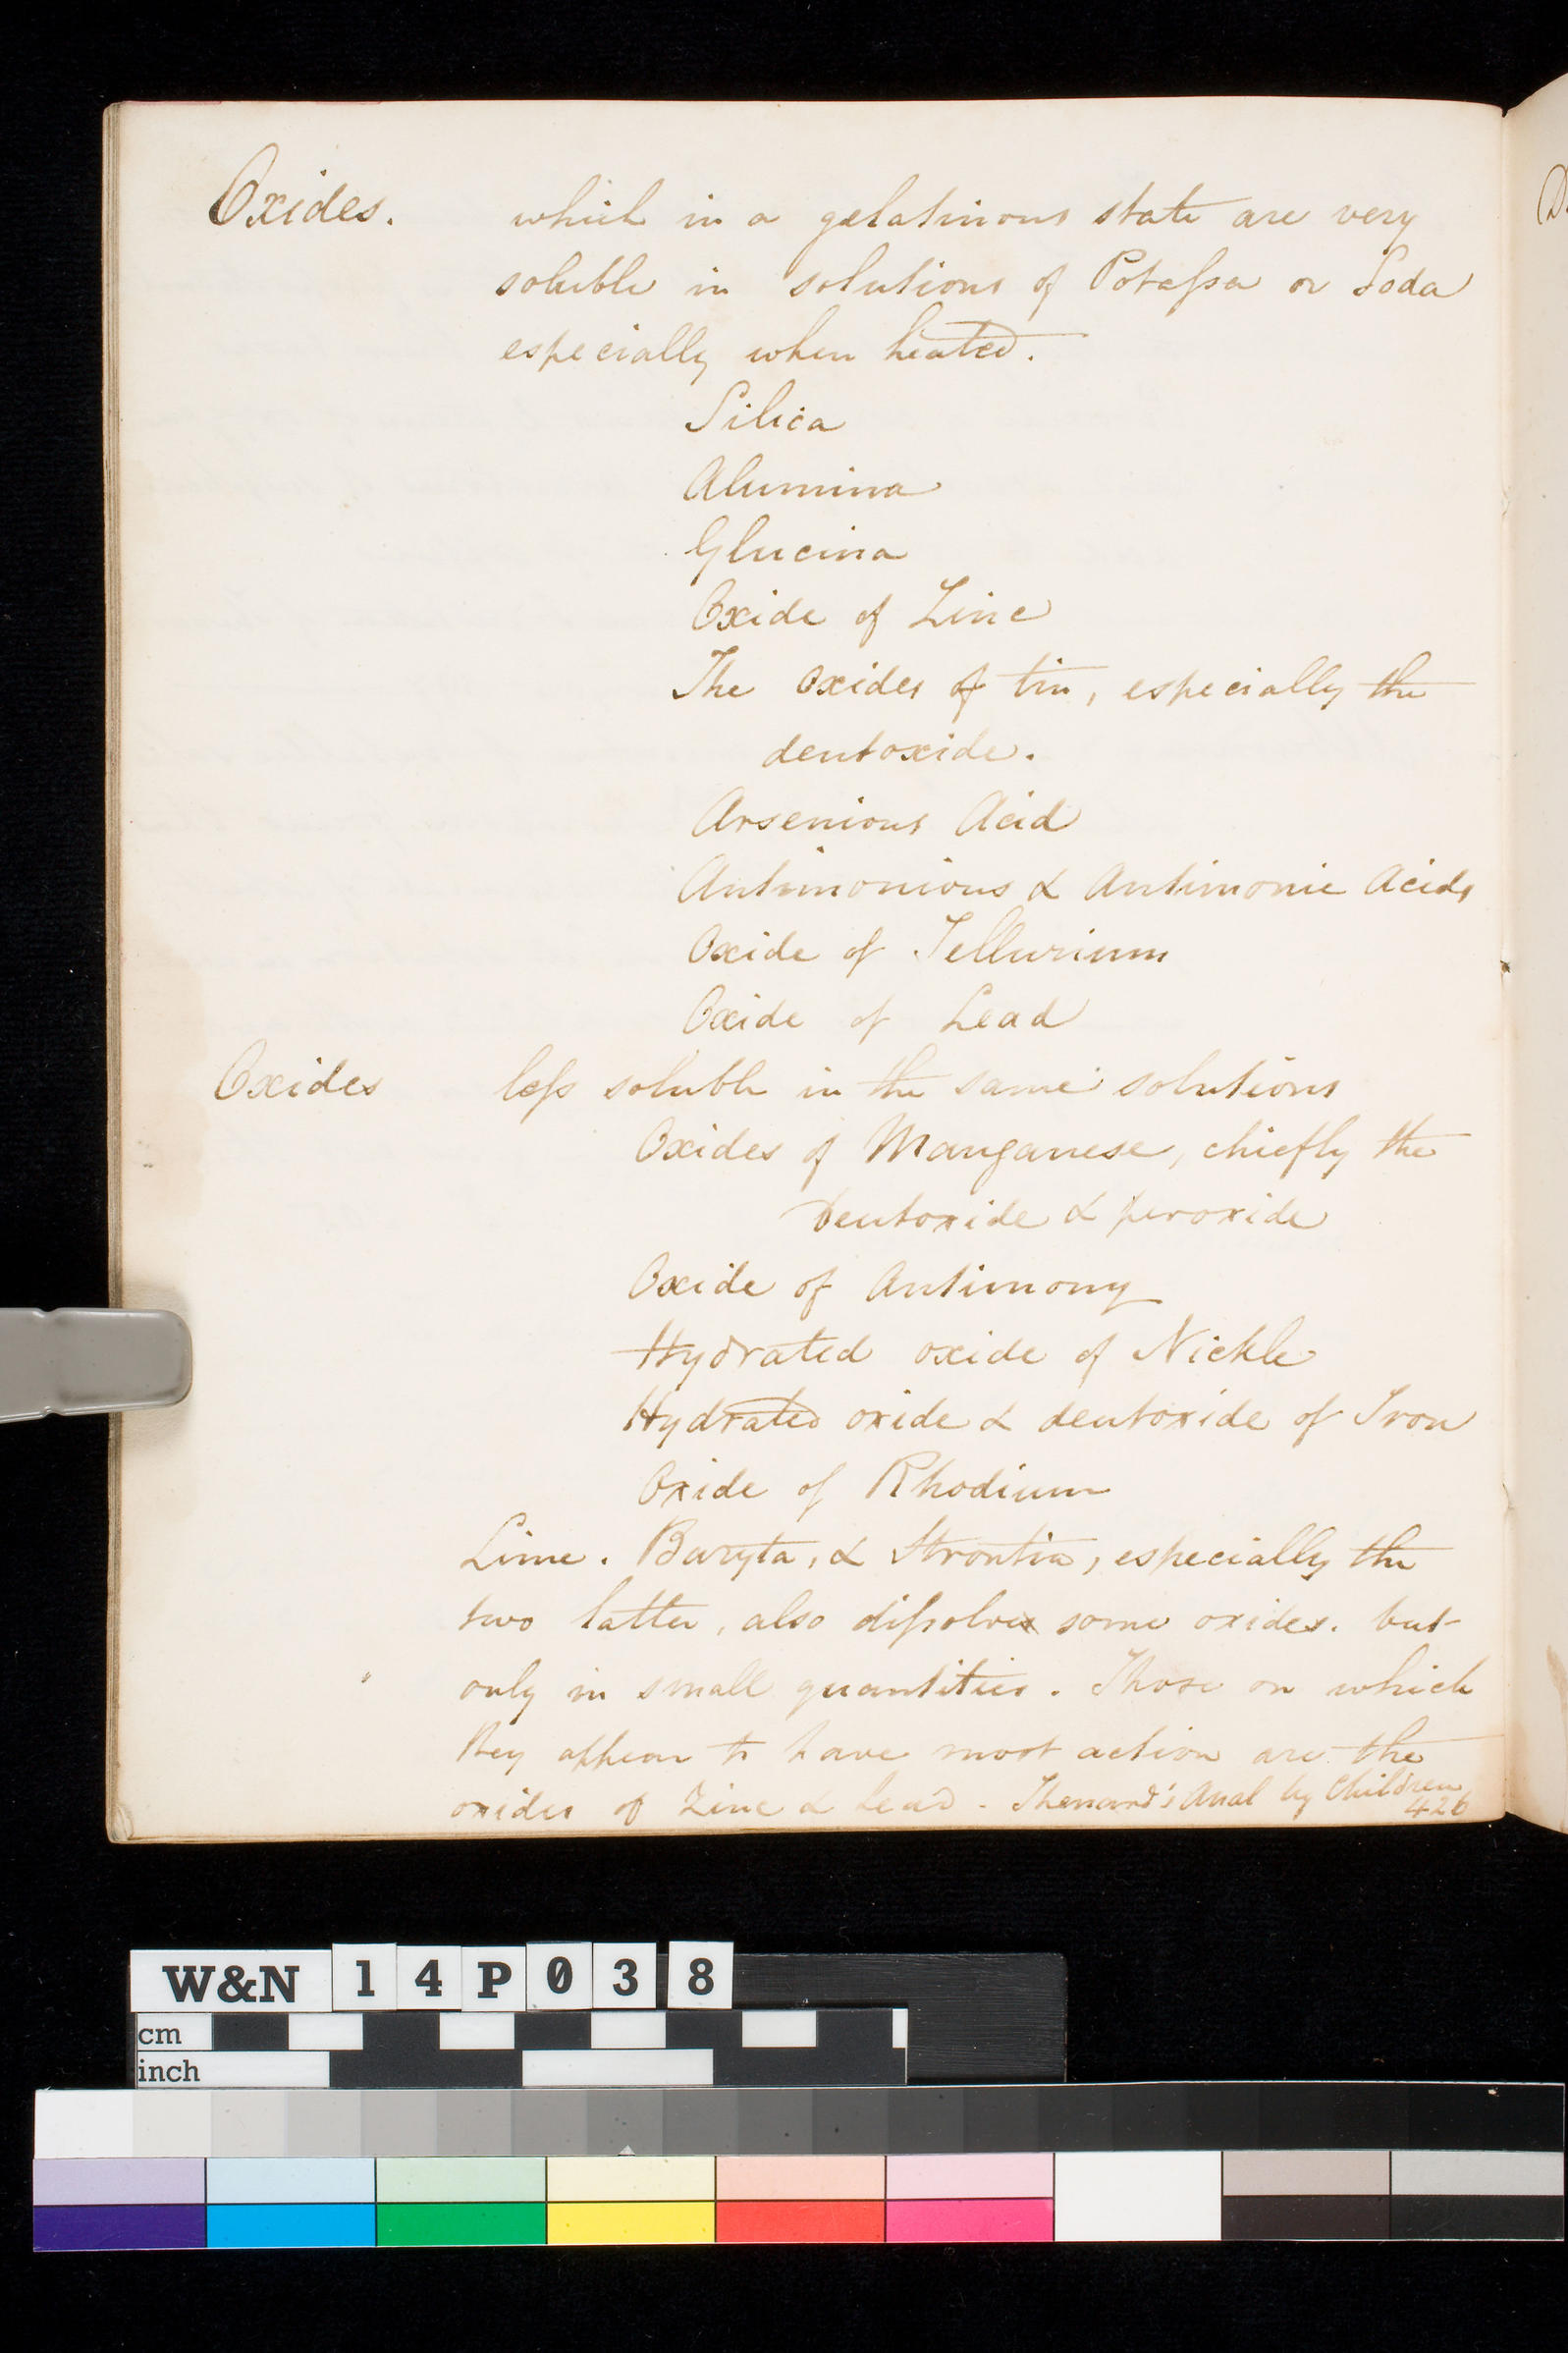 Oxides. which in a gelatinous state are very
soluble in solutions of Potaſsa or Soda
especially when heated.
Silica
Alumina
Glucina
Oxide of Zinc
The oxides of tin, especially the
deutoxide.
Arsenious Acid
Antimonious & Antimonic Acids
Oxide of Tellurium
Oxide of Lead
Oxides leſs soluble in the same solutions
Oxides of Manganese, chiefly the
Deutoxide & peroxide
Oxide of Antimony
Hydrated oxide of Nickle
Hydrated oxide & deutoxide of Iron
Oxide of Rhodium
Lime. Baryta, & Strontia, especially the
two latter, also diſsolve some oxides. but
only in small quantities. Those on which
they appear to have most action are the
oxides of Zinc & Lead - Thenard's Anal by Children
426
W&N 14P038
cm
inch